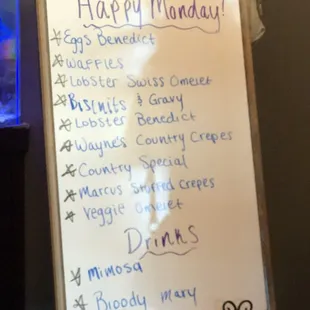 Happy Monday!
Eggs Benedict
Waffles
Lobster Swiss Omelet
Biscuits & Gravy
Lobster Benedict
Wayne's Country Crepes
Country Special
Marcus Stuffed Crepes
Veggie Omelet
Drinks
Mimosa
Bloody Mary